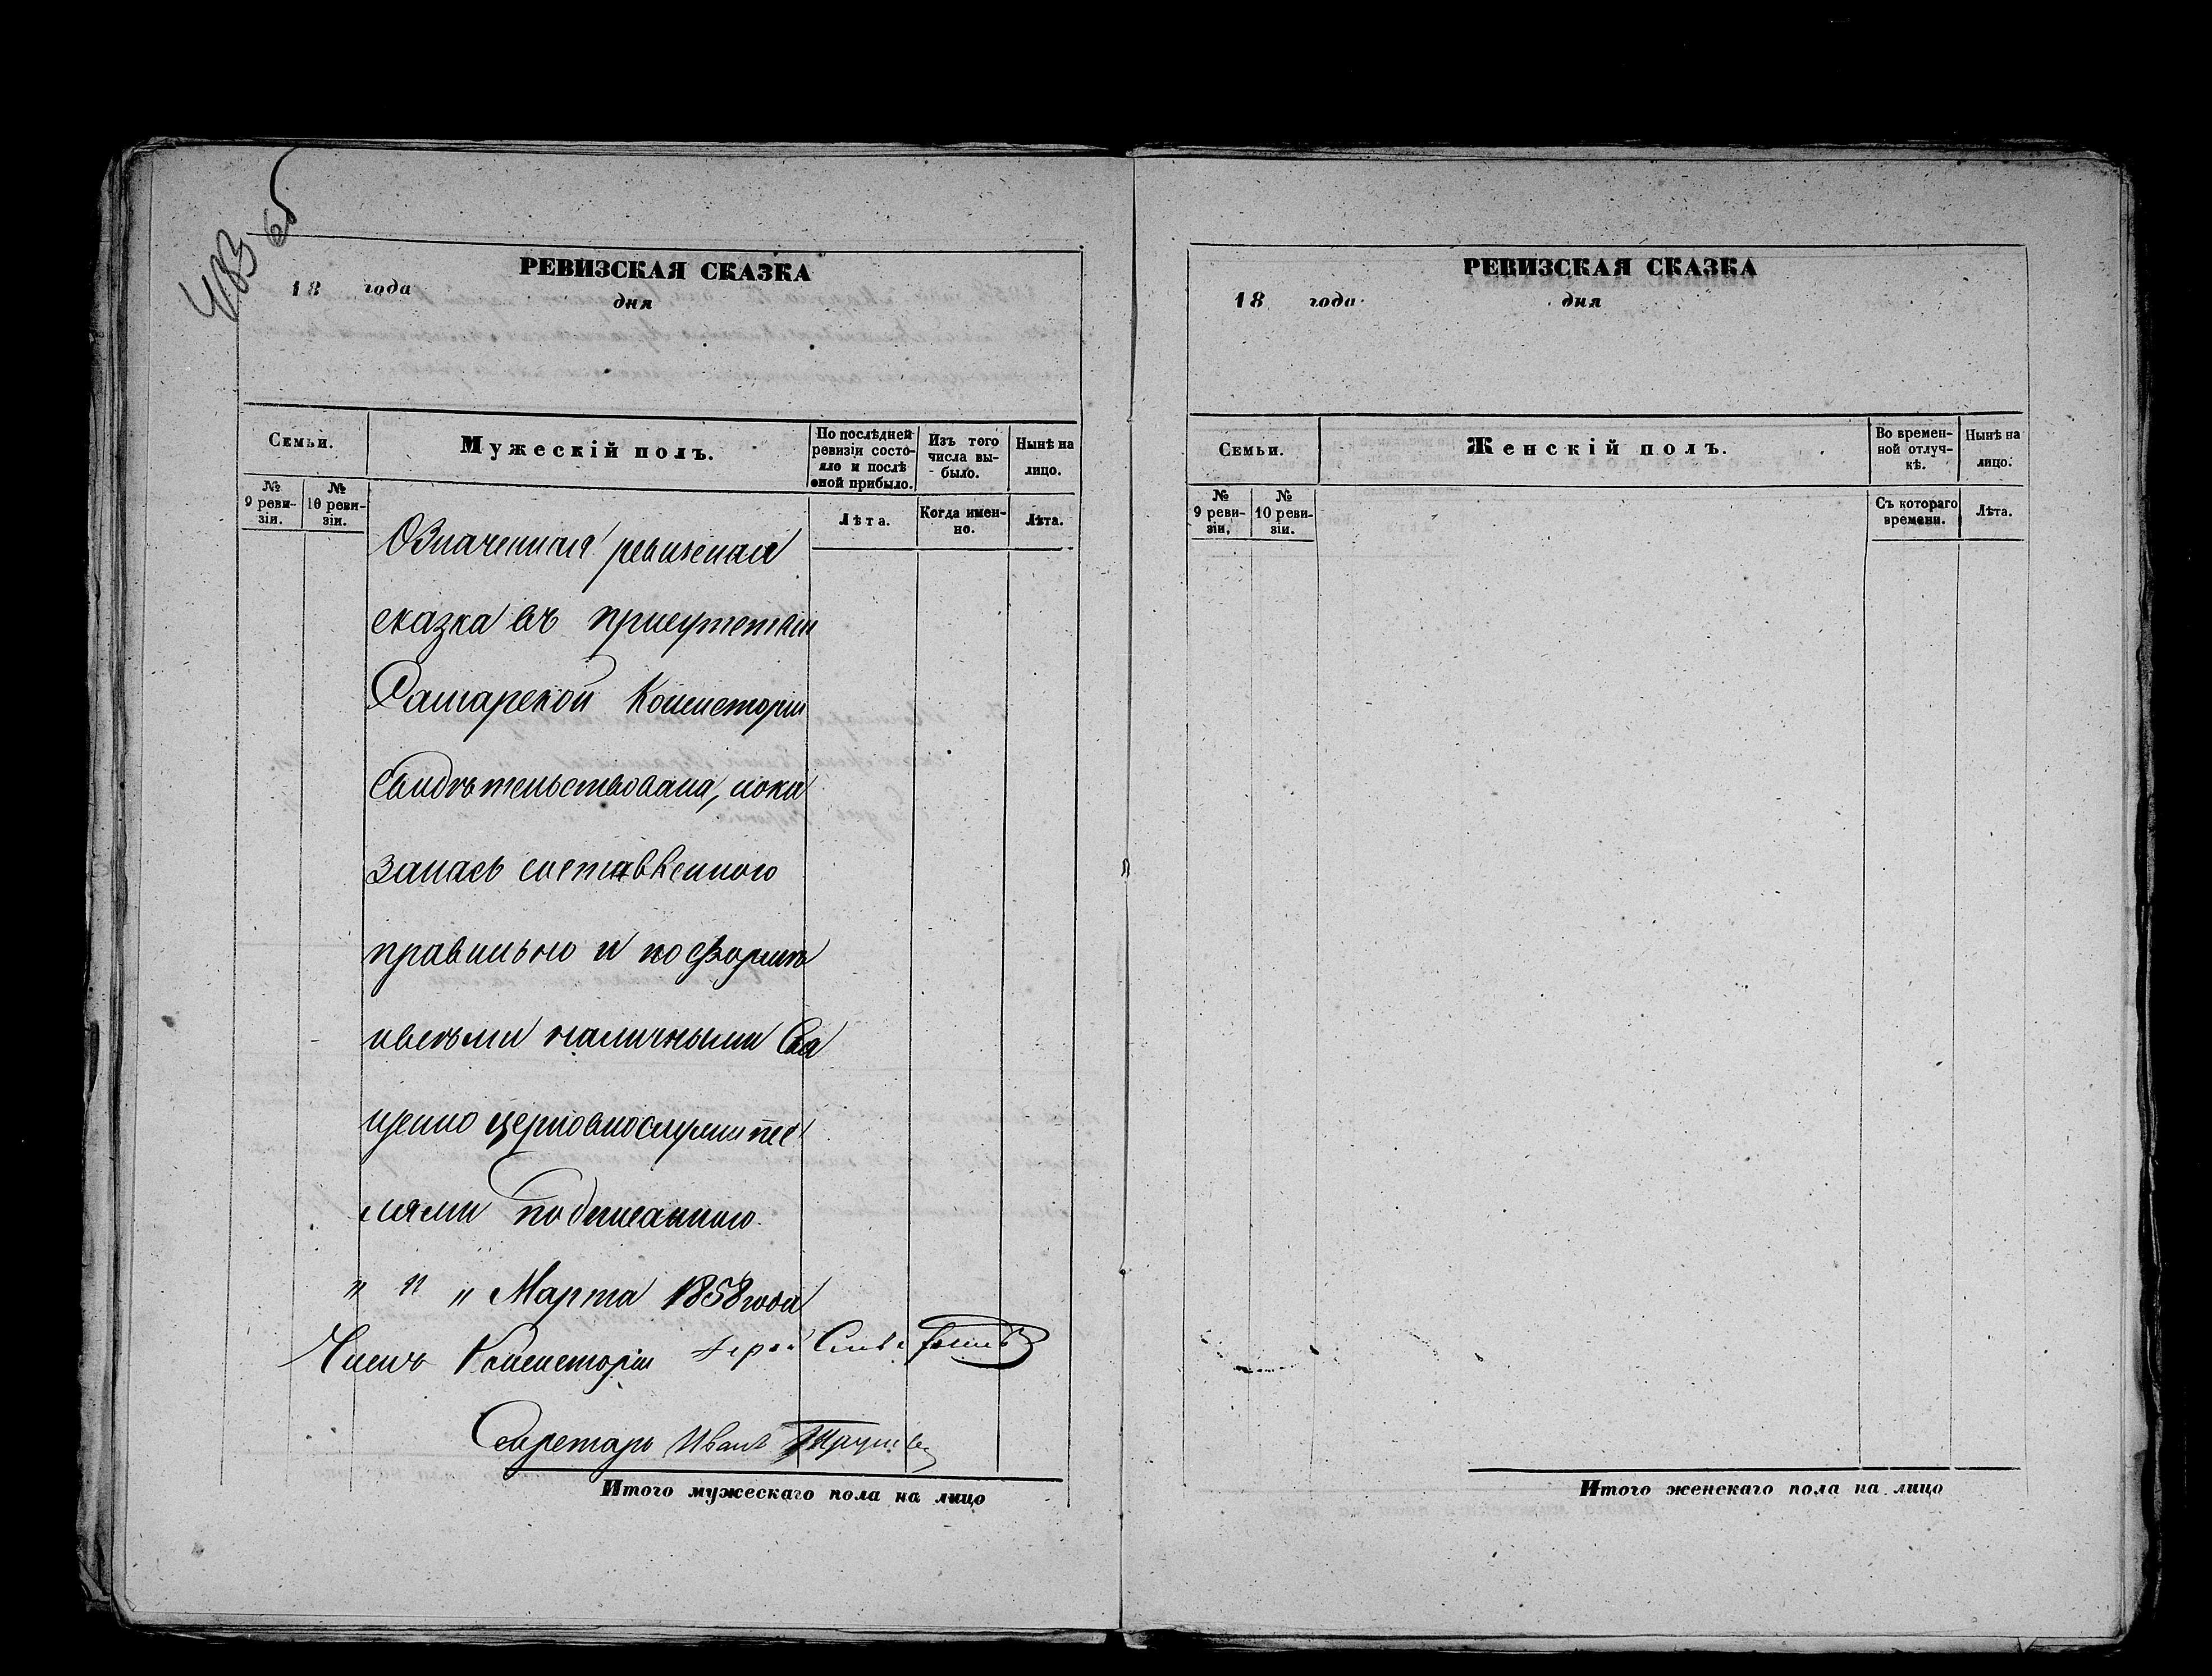 483 об
РЕВИЗСКАЯ СКАЗКА
18 года дня
Семьи.
Мужескій полъ.
По послѣдней ревизіи состояло и послѣ оной прибыло.
Изъ того числа выбыло.
Нынѣ на лицо.
№ 9 ревизіи.
№ 10 ревизіи.
Лѣта.
Когда именно.
Лѣта.
Означенная ревизская
сказка въ присутствіи
Самарской Консисторіи
свидѣтельствована, пока
залась составленною
правильно и по формѣ
и всѣми наличными Свя
щенно церковнослужите
лями подписанною.
" " " Марта 1858 года
Членъ Консисторіи
Секретарь Иванъ
Итого мужескаго пола на лицо
РЕВИЗСКАЯ СКАЗКА
18 года дня
Семьи.
Женскій полъ.
Во временной отлучкѣ.
Нынѣ на лицо.
№ 9 ревизіи.
№ 10 ревизіи.
Съ котораго времени.
Лѣта.
Итого женскаго пола на лицо